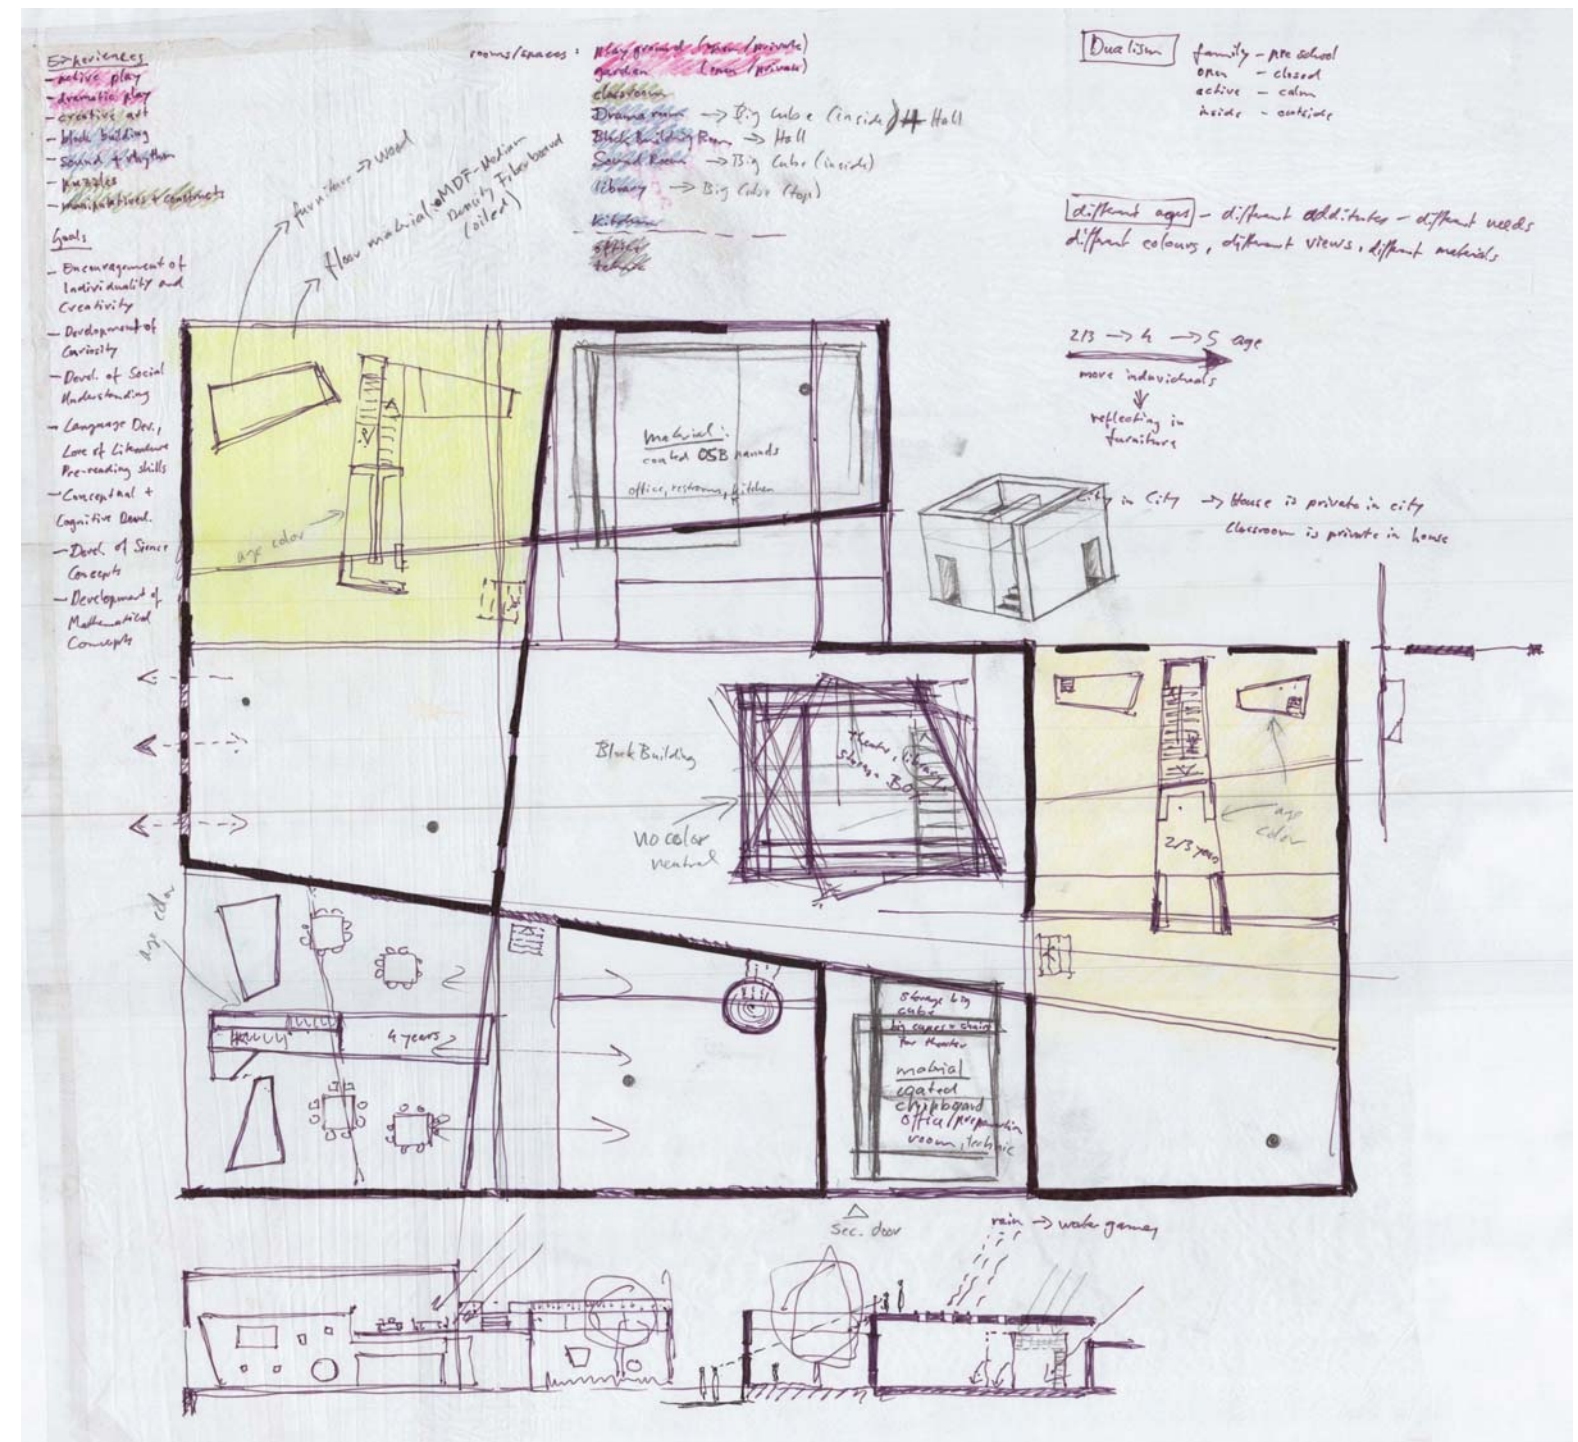 Experiences
- active play
- dramatic play
- creative art
- block building
- sound + rhythm
- puzzles
- manipulatives + constructs
Goals
- Encouragement of
Individuality and
Creativity
- Development of
Curiosity
- Devel. of Social
Understanding
- Language Dev.,
Love of Literature
Pre-reading skills
- Conceptual +
Cognitive Devel.
- Devel. of Science
Concepts
- Development of
Mathematical
Concepts
furniture → wood
floor material: MDF-Medium
Density Fiberboard
(oiled)
rooms/spaces:
play ground (open/private)
garden (open/private)
classroom
Drama room → Big Cube (inside) Hall
Block Building Room → Hall
Sound Room → Big Cube (inside)
library → Big Cube (top)
kitchen
office
Dualism
family - pre school
open - closed
active - calm
inside - outside
different ages - different additutes - different needs
different colours, different views, different materials
2/3 → 4 → 5 age
more individuals
reflecting in
furniture
City in City → House is private in city
Classroom is private in house
material:
coated OSB
office, restrooms, kitchen
age color
Block Building
no color
neutral
theatre, library
storage Box
age
color
2/3 years
age color
4 years
storage big
cube
big capes + chairs
for theater
material
coated
chipboard
office/preparation
room, technic
sec. door
rain → water games